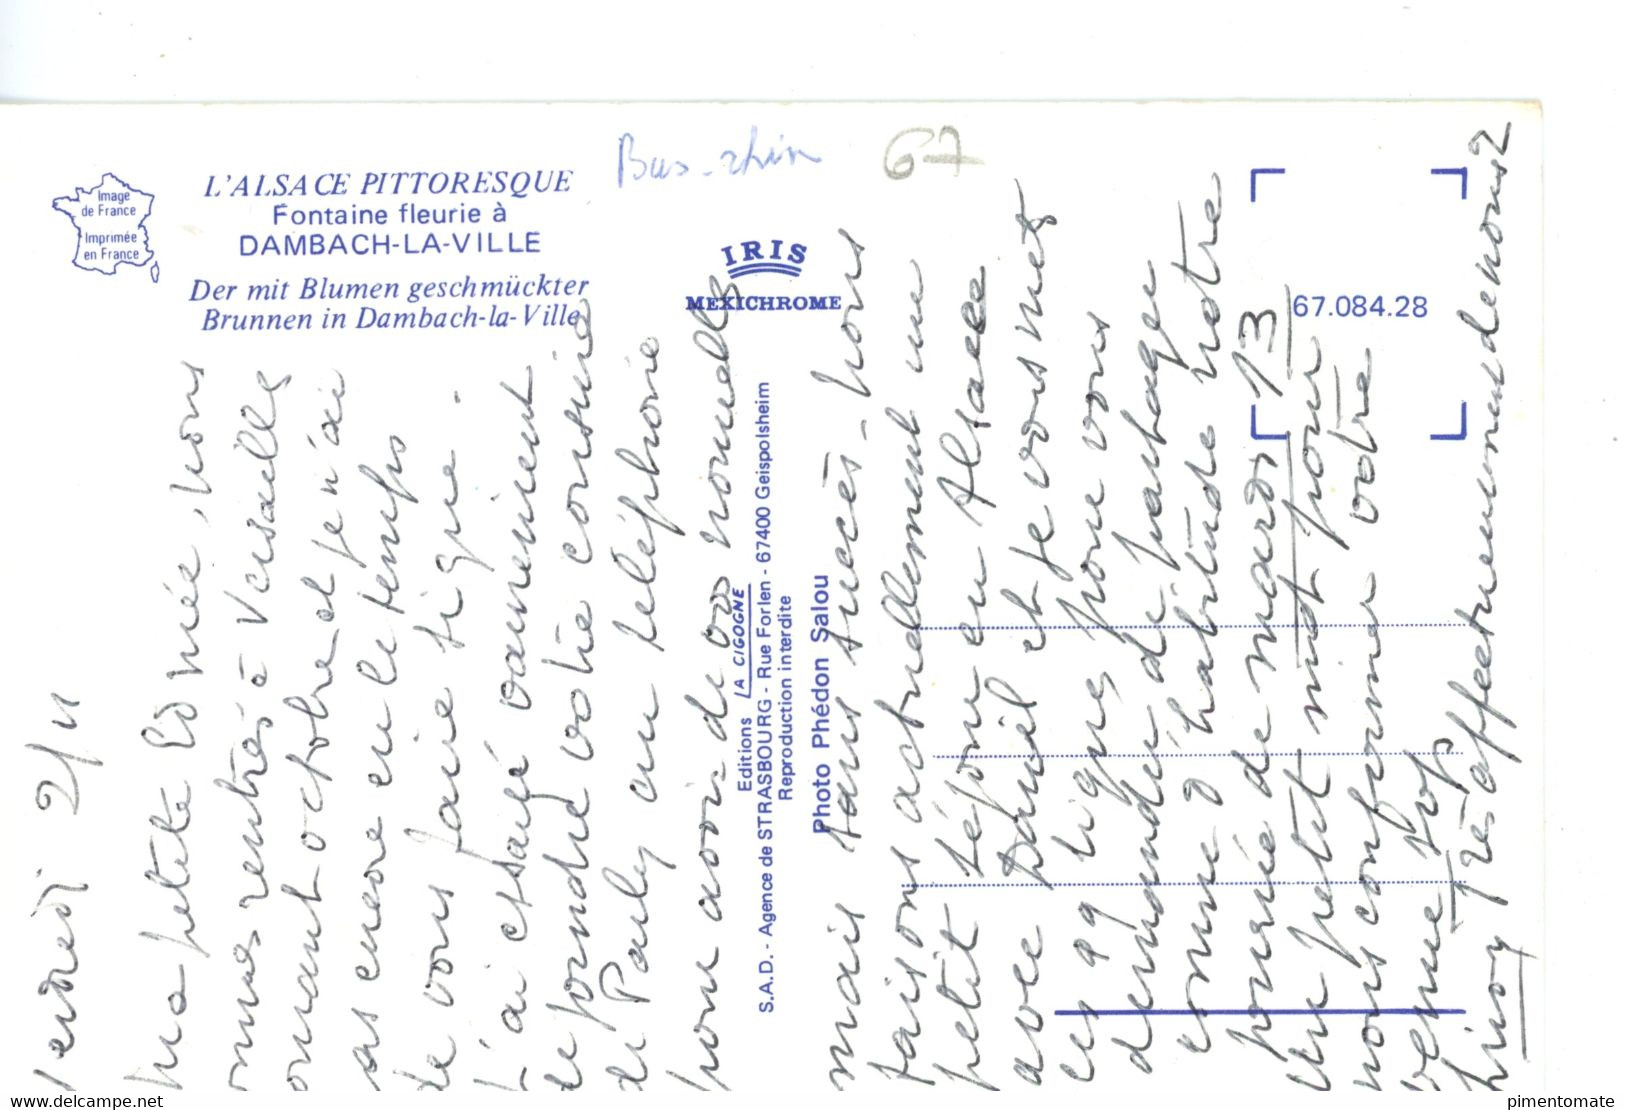 Bas-rhin 67
Image
de France
Imprimée
en France
L'ALSACE PITTORESQUE
Fontaine fleurie à
DAMBACH-LA-VILLE
Der mit Blumen geschmückter
Brunnen in Dambach-la-Ville
IRIS
MEXICHROME
67.084.28
Editions LA CIGOGNE
S.A.D. - Agence de STRASBOURG - Rue Forlen - 67400 Geispolsheim
Reproduction interdite
Photo Phédon Salou
endredi 2/11
Ma petite Edmée, nous
ommes rentrés à Versailles
ourant octobre et je n'ai
as encore eu le temps
de vous faire signe.
J'ai essayé vainement
de joindre votre cousine
de Pauly au téléphone
pour avoir de vos nouvelles
mais sans succès - nous
faisons actuellement un
petit séjour en Alsace
avec Daniel et je vous mets
ces qq lignes pour vous
demander de partager
comme d'habitude notre
journée de mardi 13
un petit mot pour
nous confirmer votre
venue svp
Très affectueusement de nous 2